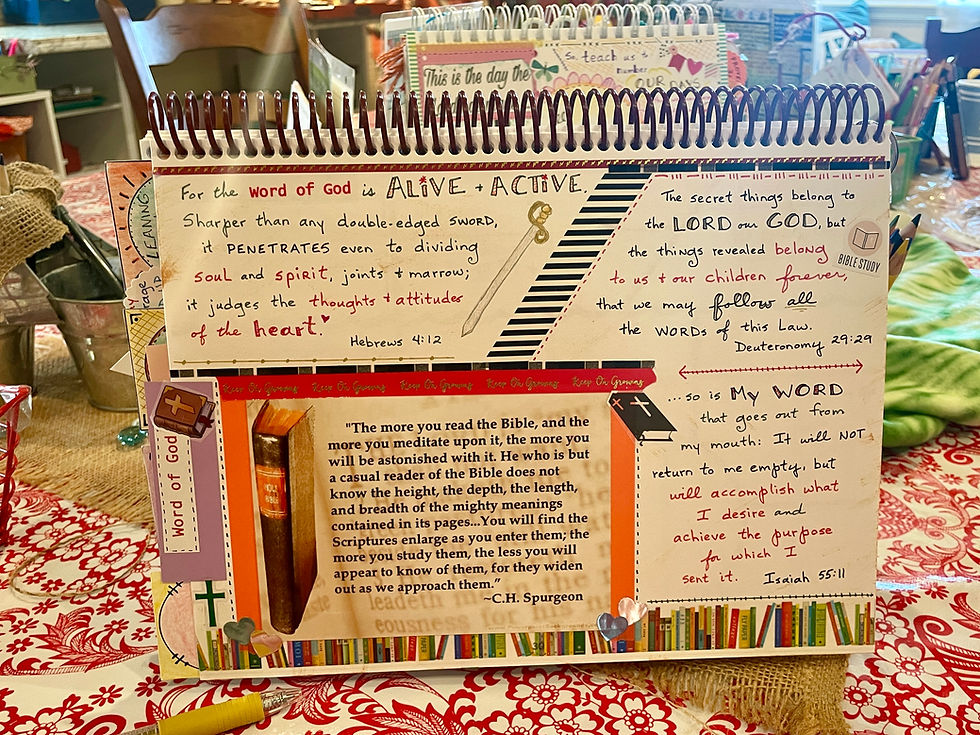 This is the day the
So, teach us to
number
OUR DAYS
For the Word of God is ALiVE + ACTiVE.
Sharper than any double-edged SWORD,
it PENETRATES even to dividing
soul and spirit, joints + marrow;
it judges the thoughts + attitudes
of the heart.
Hebrews 4:12
The secret things belong to
the LORD our GOD, but
the things revealed belong
to us + our children forever,
that we may follow all
the WORDs of this Law.
Deuteronomy 29:29
BIBLE STUDY
...so is My WORD
that goes out from
my mouth: It will NOT
return to me empty, but
will accomplish what
I desire and
achieve the purpose
for which I
sent it. Isaiah 55:11
LEANING
Keep On Growing Keep On Growing Keep On Growing Keep On Growing Keep On Growing
Word of God
HOLY BIBLE
"The more you read the Bible, and the
more you meditate upon it, the more you
will be astonished with it. He who is but
a casual reader of the Bible does not
know the height, the depth, the length,
and breadth of the mighty meanings
contained in its pages...You will find the
Scriptures enlarge as you enter them; the
more you study them, the less you will
appear to know of them, for they widen
out as we approach them."
~C.H. Spurgeon
leadeth me in the
30